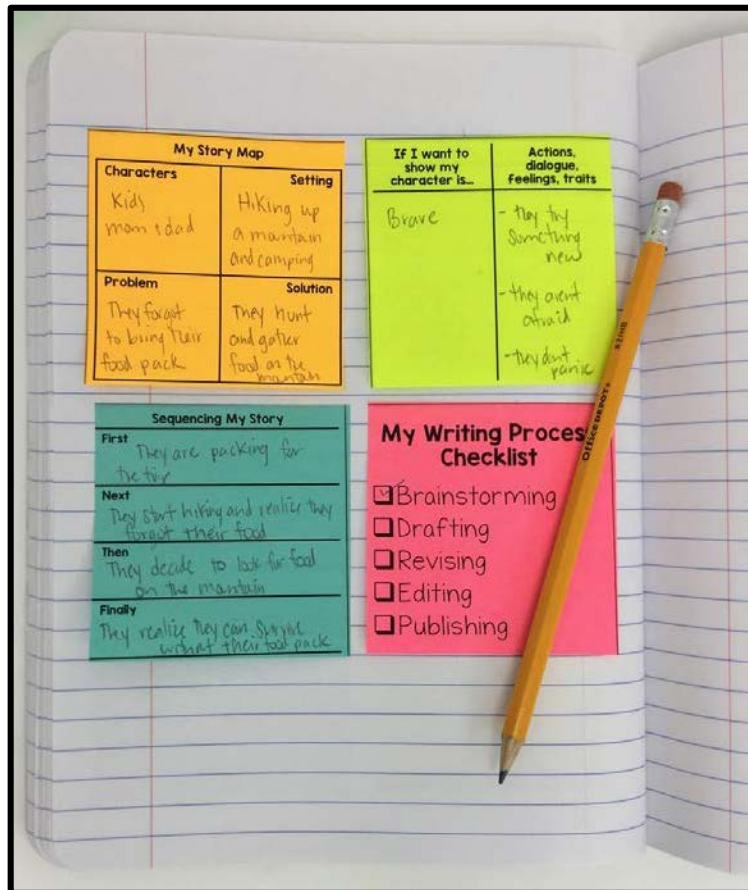 My Story Map
Characters
Kids
mom & dad
Setting
Hiking up
a mantain
and camping
Problem
They forgot
to bring their
food pack
Solution
They hunt
and gather
food on the
mantain
If I want to
show my
character is...
Brave
Actions,
dialogue,
feelings, traits
- they try
something
new
- they arent
afraid
- they dont
panic
Sequencing My Story
First
They are packing for
the trip
Next
They start hiking and realize they
forgot their food
Then
They decide to look for food
on the mantain
Finally
They realize they can survive
without their food pack
My Writing Proces
Checklist
Brainstorming
Drafting
Revising
Editing
Publishing
Office DEPOT
#2/HB